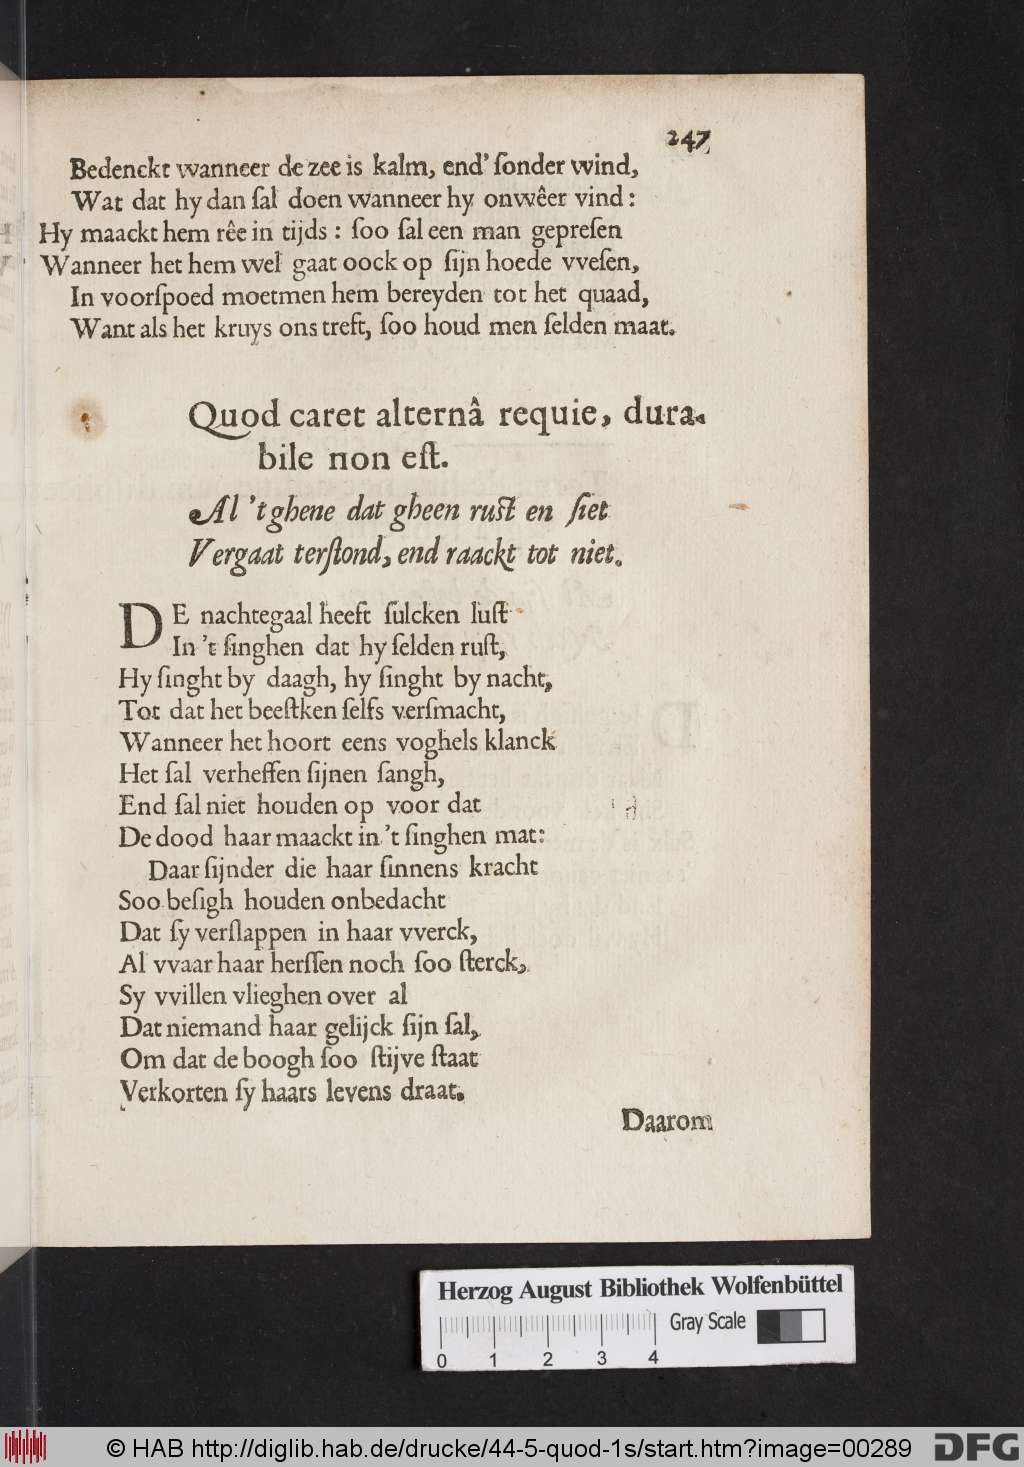 247
Bedenckt wanneer de zee is kalm, end' ſonder wind,
Wat dat hy dan ſal doen wanneer hy onwêer vind:
Hy maackt hem rêe in tijds: ſoo ſal een man gepreſen
Wanneer het hem wel gaat oock op ſijn hoede vveſen,
In voorſpoed moetmen hem bereyden tot het quaad,
Want als het kruys ons treft, ſoo houd men ſelden maat.
Quod caret alternâ requie, dura-
bile non eſt.
Al 't ghene dat gheen ruſt en ſiet
Vergaat terſtond, end raackt tot niet.
DE nachtegaal heeft ſulcken luſt
In 't ſinghen dat hy ſelden ruſt,
Hy ſinght by daagh, hy ſinght by nacht,
Tot dat het beeſtken ſelfs verſmacht,
Wanneer het hoort eens voghels klanck
Het ſal verheffen ſijnen ſangh,
End ſal niet houden op voor dat
De dood haar maackt in 't ſinghen mat:
Daar ſijnder die haar ſinnens kracht
Soo beſigh houden onbedacht
Dat ſy verſlappen in haar vverck,
Al vvaar haar herſſen noch ſoo ſterck,
Sy vvillen vlieghen over al
Dat niemand haar gelijck ſijn ſal,
Om dat de boogh ſoo ſtijve ſtaat
Verkorten ſy haars levens draat.
Daarom
Herzog August Bibliothek Wolfenbüttel
Gray Scale
0 1 2 3 4
© HAB http://diglib.hab.de/drucke/44-5-quod-1s/start.htm?image=00289
DFG